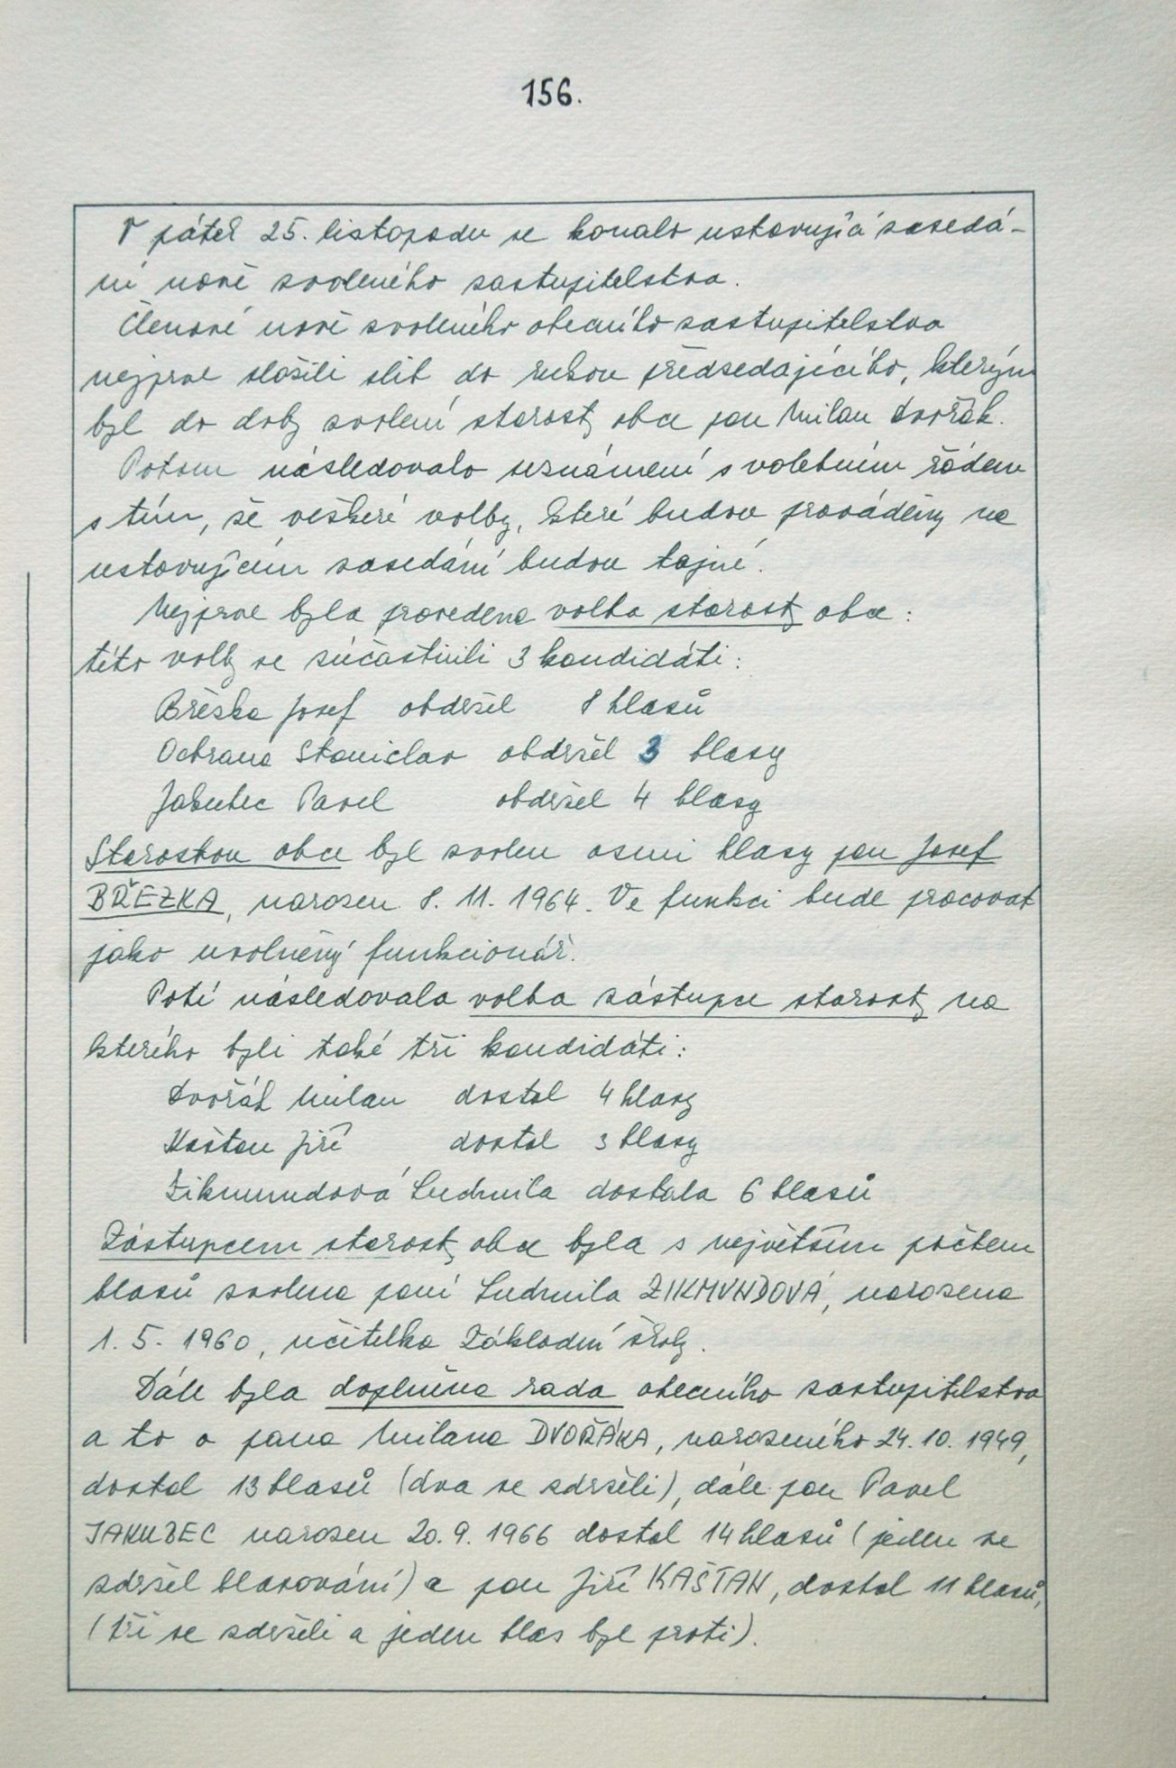 156.
V pátek 25. listopadu se konalo ustavující zasedá-
ní nově zvoleného zastupitelstva.
Členové nově zvoleného obecního zastupitelstva
nejprve složili slib do rukou předsedajícího, kterým
byl do doby zvolení starosty obce pan Milan Dvořák.
Potom následovalo seznámení s volebním řádem
s tím, že veškeré volby, které budou prováděny na
ustavujícím zasedání budou tajné.
Nejprve byla provedena volba starosty obce:
této volby se zúčastnili 3 kandidáti:
Břězka Josef obdržel 8 hlasů
Ochrana Stanislav obdržel 3 hlasy
Jakubec Pavel obdržel 4 hlasy
Starostou obce byl zvolen osmi hlasy pan Josef
BŘEZKA, narozen 8. 11. 1964. Ve funkci bude pracovat
jako uvolněný funkcionář.
Poté následovala volba zástupce starosty na
kterého byli také tři kandidáti:
Dvořák Milan dostal 4 hlasy
Kaštan Jiří dostal 3 hlasy
Zikmundová Ludmila dostala 6 hlasů
Zástupcem starosty obce byla s největším počtem
hlasů zvolena paní Ludmila ZIKMUNDOVÁ, narozena
1. 5. 1960, učitelka Základní školy.
Dále byla doplněna rada obecního zastupitelstva
a to o pana Milana DVOŘÁKA, narozeného 24. 10. 1949,
dostal 13 hlasů (dva se zdrželi), dále pan Pavel
JAKUBEC narozen 20. 9. 1966 dostal 14 hlasů (jeden se
zdržel hlasování) a pan Jiří KAŠTAN, dostal 11 hlasů,
(tři se zdrželi a jeden hlas byl proti).